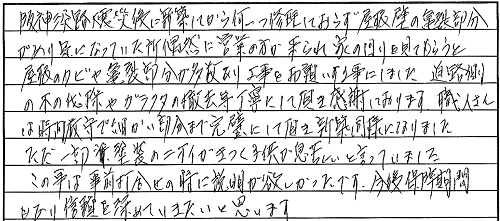 阪神淡路大震災後に新築してから何一つ修理しておらず屋根壁の亀裂部分
がかなり気になっていた所偶然に営業の方が来られ家の回りを見てもらうと
屋根のカビや亀裂部分が多数あり工事をお願いする事にしました 道路側
の木の伐採やガラクタの撤去等丁寧にして頂き感謝しております 職人さん
は時間厳守で細かい部分まで完璧にして頂き新築同様になりました
ただ一部 塗装のニオイがきつく子供が息苦しいと言っていました
この事は事前打合せの時に説明が欲しかったです。今後保障期間
もあり信頼を深めていきたいと思います